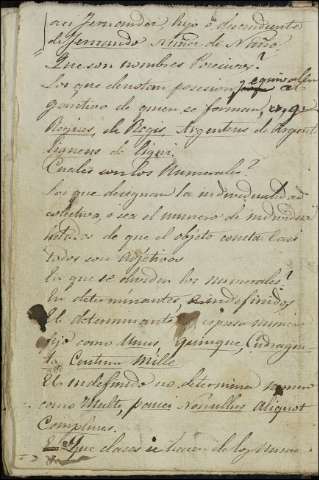 asi Fernandez hijo o descendiente
de Fernando Muñoz de Muño.
Que son nombres Posesivos?
Los que denotan posesion, equivalen al
genitivo de quien se forman,
Regius, de Regis, Argenteus de Argent
Ligneus de Ligni.
Cuales son los Numerales?
Los que designan la individualidad
colectiva, o sea el numero de individuos
de que el objeto consta. Casi
todos son Adjetivos
En que se dividen los numerales?
En determinantes, e indefinidos
El determinante espresa numero
fijo como Unus, Quinque, Cudragin-
ta, Centum, Mille.
El indefinido no determina numero
como Multi, pauci, Nonnullus, Aliquot
Complures.
Que clases se hacen de los Nume-